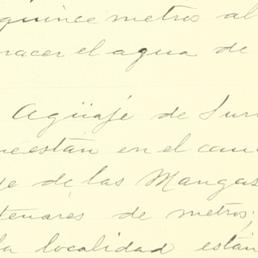 quince metros al
nacer el agua de
Agüaje de
están en el
de las Mangas
metros;
la localidad están